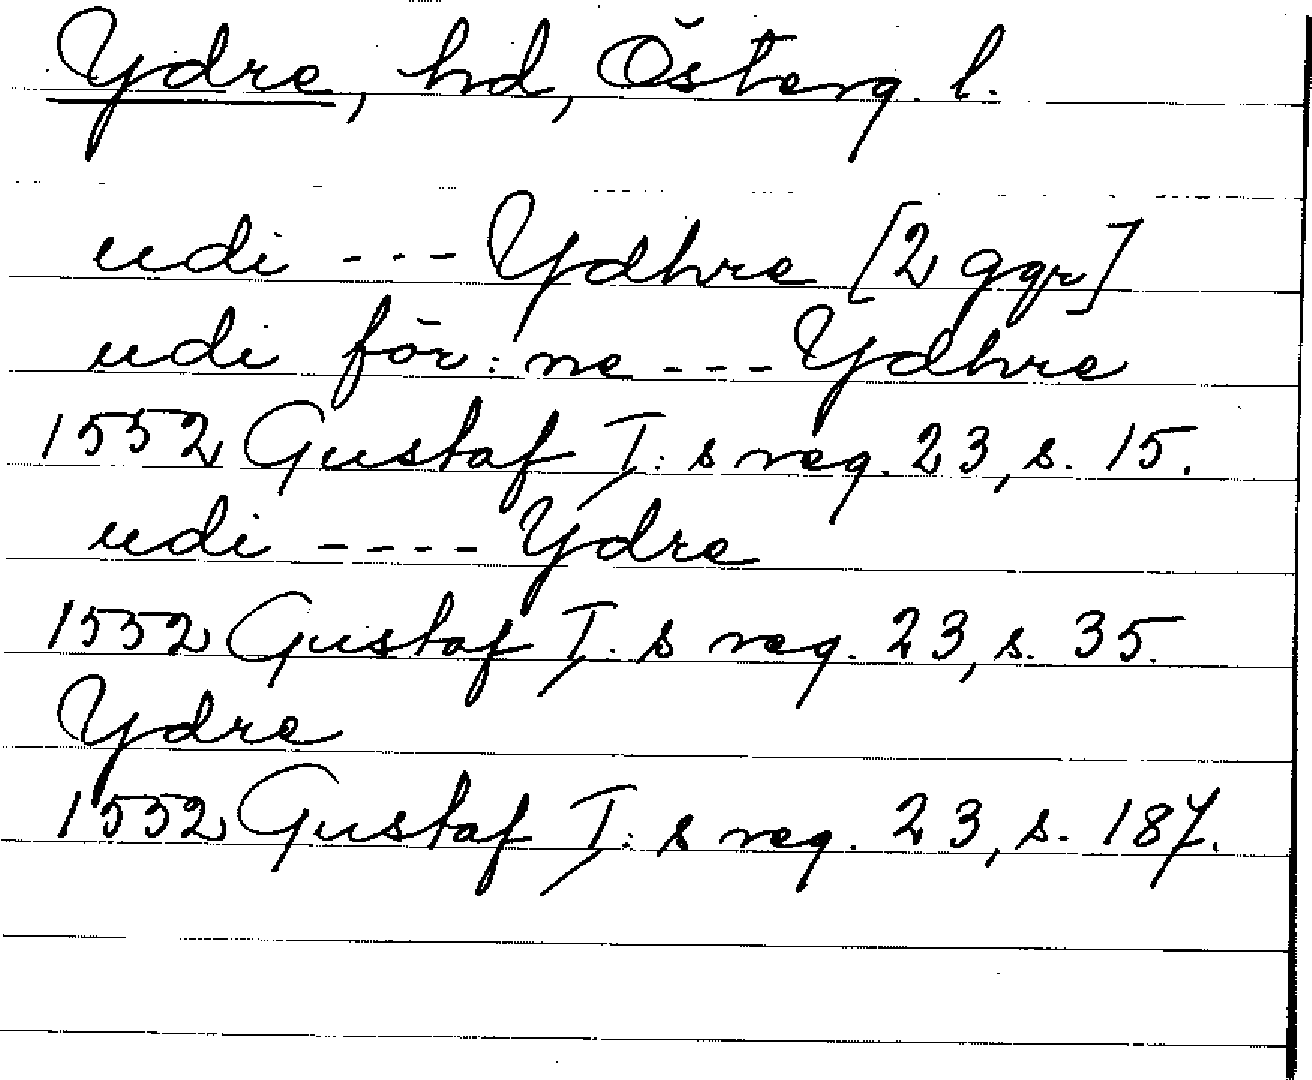 Ydre, hd, Österg. l.
udi --- Ydhre [2 ggr]
udi för:ne --- Ydhre
1552 Gustaf I:s reg. 23, s. 15.
udi ---- Ydre
1552 Gustaf I:s reg. 23, s. 35.
Ydre
1552 Gustaf I:s reg. 23, s. 187.